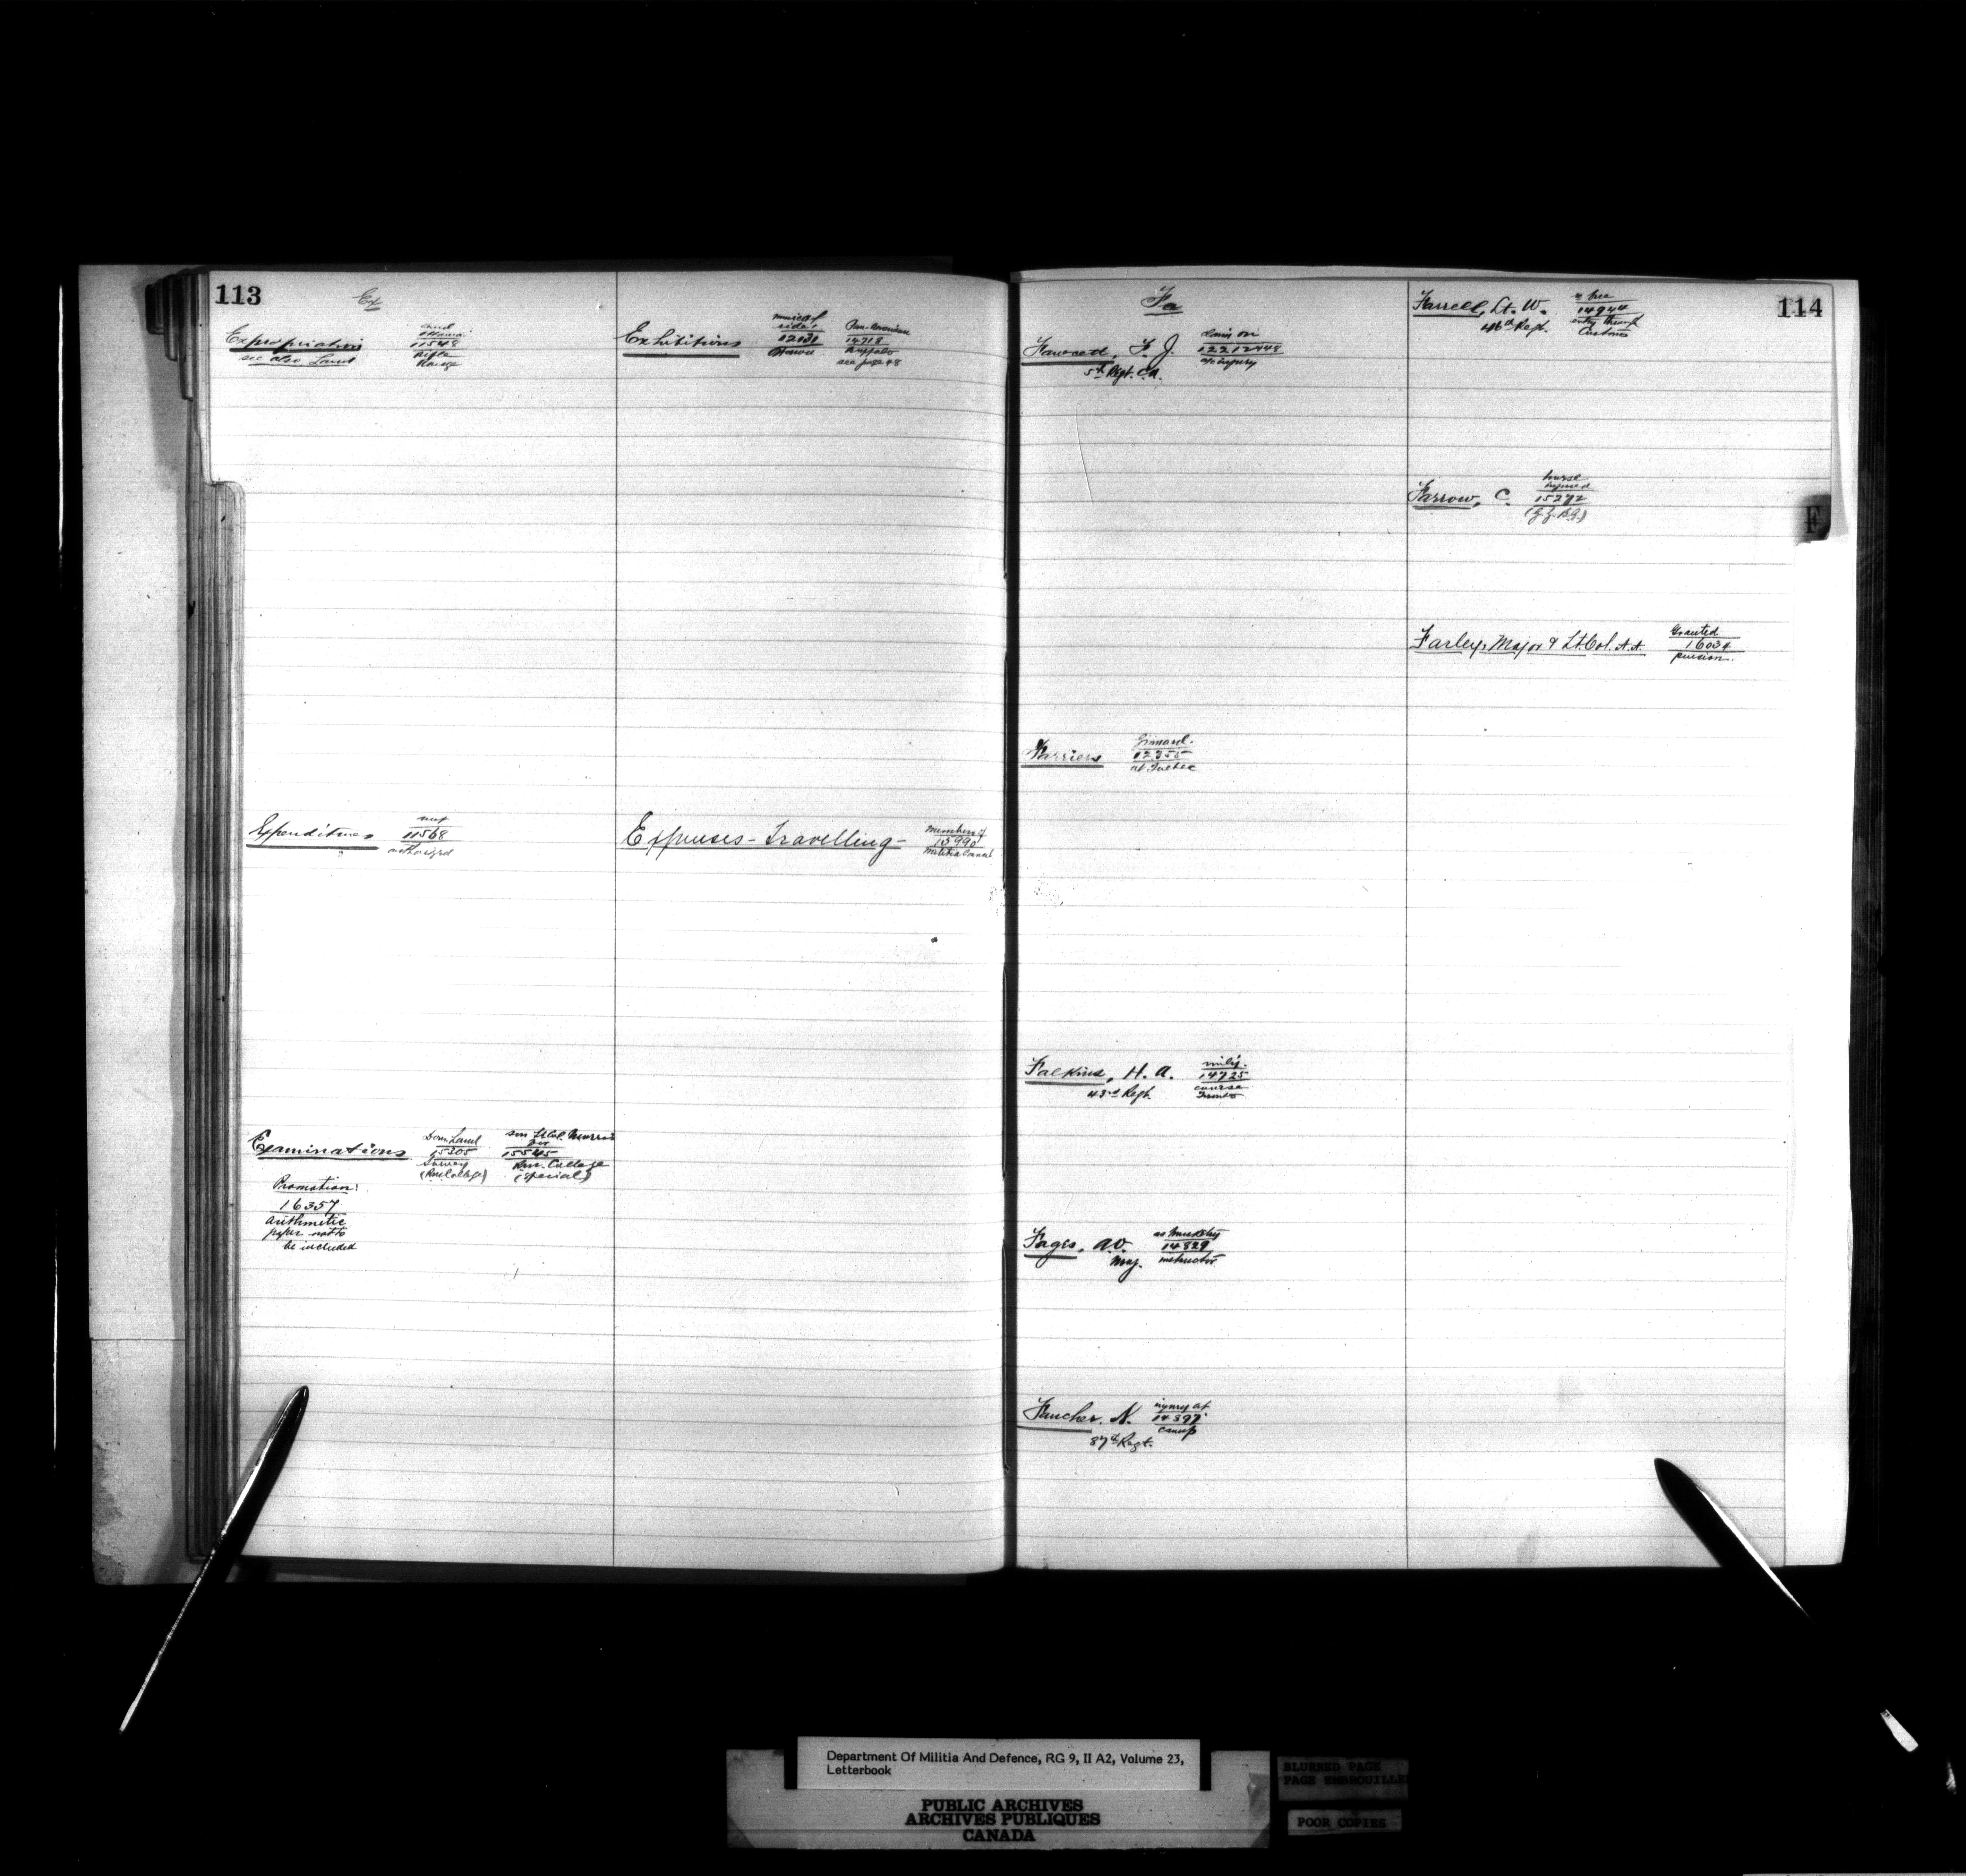 113
Ex
Expropriation
see also Land
Land
Ottawa
11548
Rifle
Range
Exhibitions
musical
ride
12030
Ottawa
Pan-American
14718
Buffalo
see page 48
Expenditures
not
11568
authorized
Expenses - Travelling -
members of
15990
Militia Council
Examinations
Dom. Land
15305
Survey
(R.M. College)
son Lt Col. Morris
for
15545
R.M. College
(special)
Promotion:
16357
arithmetic
paper not to
be included
114
Fa
Fawcett, F. J.
5th Regt. C.A.
claim on
12212448
a/c injury
Farriers
12355
at Quebec
Falkins, H. A.
43rd Regt.
14725
course
Toronto
Fages, A.O.
Maj.
as Musketry
14829
instructor
Faucher, N.
87th Regt.
injury at
14897
camp
Farrell, Lt. W.
46th Regt.
free
14944
entry through
Customs
Farrow, C.
horse
injured
15272
(G.G.B.G.)
Farley, Major & Lt. Col. A.A.
Granted
16034
pension.
F
Department Of Militia And Defence, RG 9, II A2, Volume 23,
Letterbook
PUBLIC ARCHIVES
ARCHIVES PUBLIQUES
CANADA
BLURRED PAGE
PAGE EMBROUILLE
POOR COPIES